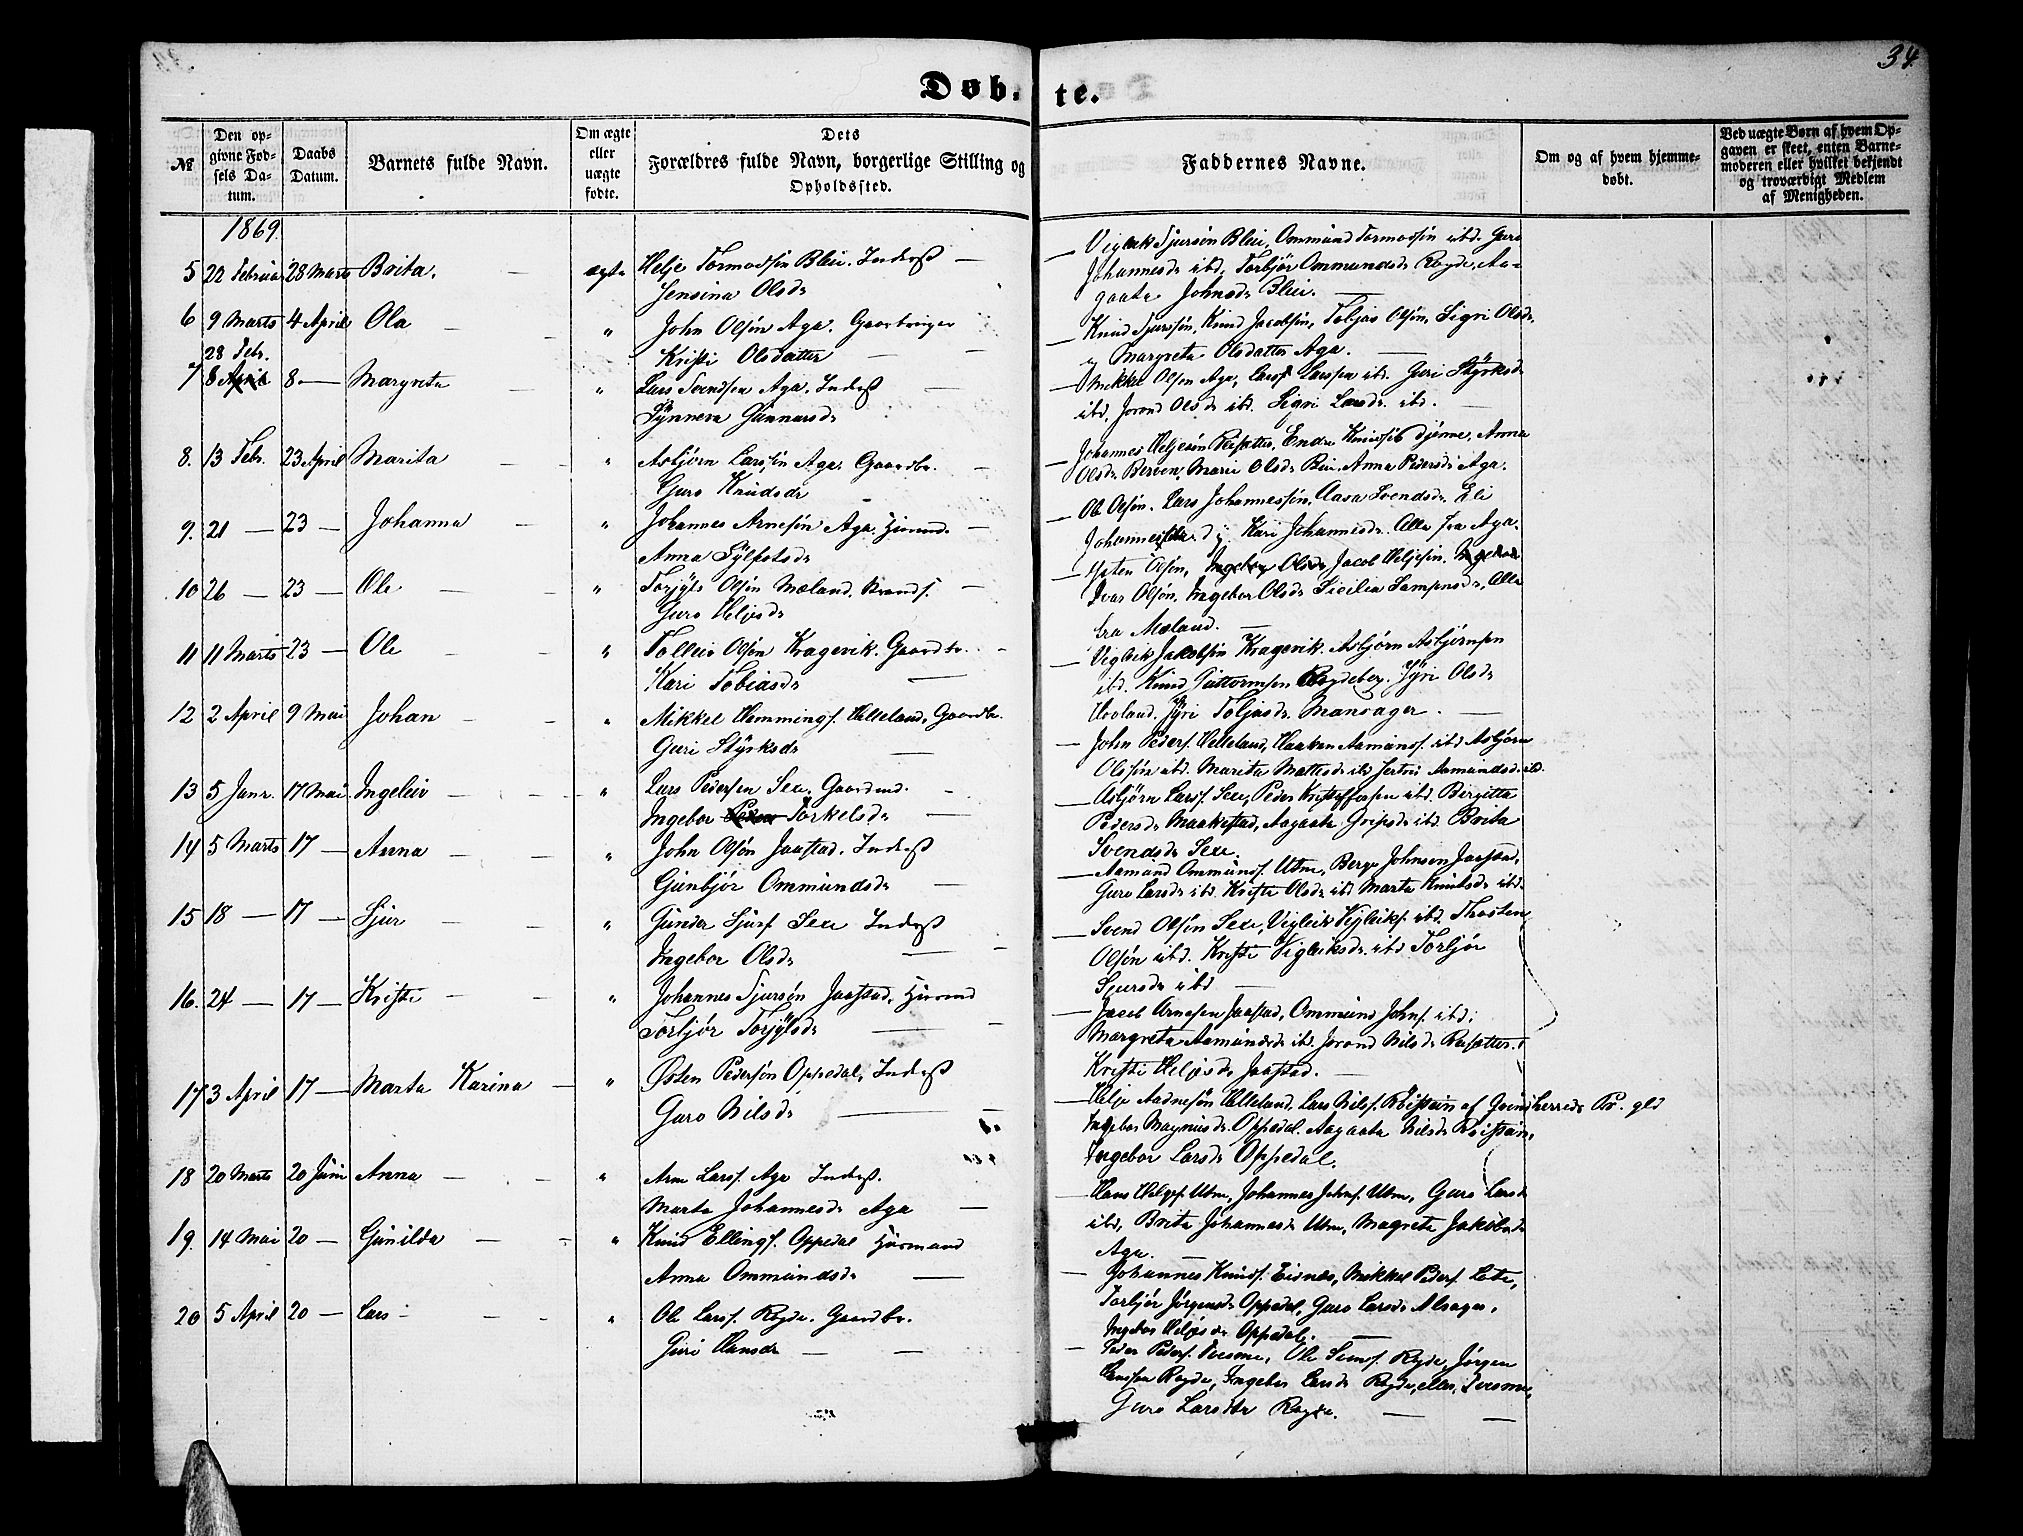 34.
Døb- te.
№
Den op-
givne Fød-
sels Da-
tum.
Daabs
Datum.
Barnets fulde Navn.
Om ægte
eller
uægte
fødte.
Dets
Forældres fulde Navn, borgerlige Stilling og
Opholdssted.
Faddernes Navne.
Om og af hvem hjemme-
døbt.
Ved uægte Børn af hvem Op-
gaven er skeet, enten Barne-
moderen eller hvilket bekjendt
og troværdigt Medlem
af Menigheden.
1869.
5 22 Februar 28 Marts Brita. — ægte Helje Tormodsøn Bleie. Inderst —
Jensina Olsdr
— Vigleik Sjursøn Bleie, Ommund Tormodsøn ibd. Guro
Johannesdr ibd. Torbjør Ommundsdr Rogde, Aa-
gaata Johnsdr Bleie. —
6 9 Marts 4 April Ola — " John Olsøn Aga. Gaardbruger
Kristi Olsdatter — —
— Knud Sjurssøn, Knud Jacobsøn, Toljas Olsøn, Sigri Olsdr
og Margreta Olsdatter Aga. —
28 Febr.
7 8 April 8 — Margreta — " Lars Svendsen Aga. Inderst —
Synneva Gunnarsdr
— Mikkel Olsøn Aga, Lars Larssen ibd. Guri Styrksdr
ibd, Jorond Olsdr ibd. Sigri Larsdr. ibd. —
8. 13 Febr. 23 April Marita — — " Asbjørn Larssøn Aga. Gaardbr. —
Guro Knudsdr
— Johannes Heljesøn Reisæter, Endre Knudssøn Djønne, Anna
Olsdr Berven, Marie Olsdr Bleie. Anna Pedersdr Aga.
9. 21 — 23 — Johanna — " Johannes Arnesøn Aga, Huusmd. —
Anna Sylfestsdr
— Ole Olsøn. Lars Johannessøn, Aasa Svendsdr. Eli
Johannesdr og Kari Johannesdr. Alle fra Aga.
10 26 — 23 — Ole — — " Torjyls Olsøn Mæland. Strands. —
Guro Heljesdr
— Østen Olsøn, Ingebor Olsdr, Jacob Heljesøn. Ingebor
Ivar Olsøn, Ingebor Olsdr Sicilia Samsonsdr, Alle
fra Mæland. —
11 11 Marts 23 — Ole — — " Tolleiv Olsøn Kragevik. Gaardbr. —
Kari Tobiasdr —
— Vigleik Jakobsøn Kragevik. Asbjørn Asbjørnsen
ibd. Knud Guttormsen Rogdeberg. Gyri Olsdr
Hovland. Gyri Toljasdr. Mansager. —
12 2 April 9 Mai Johan — — " Mikkel Hemmings. Helleland, Gaardbr.
Guri Styrksdr —
— John Peders. Helleland, Haaken Aamunds. ibd Asbjørn
Olssøn ibd. Marita Mattesdr ibd Jertrud Aamundsdr. ibd.
13 5 Janr. 17 Mai Ingeleiv — — " Lars Pedersen Sexe. Gaardmd. —
Ingebor Torkelsdr —
— Asbjørn Larss. Sexe, Peder Kristoffersen ibd. Birgitta
Pedersdr Maakestad, Aagaata Gripsdr ibd. Brita
Svendsdr Sexe.
14 5 Marts 17 — Anna — — " John Olsøn Jaastad. Inderst
Gunbjør Ommundsdr —
— Aamund Ommunds. Utne, Berge Johnson Jaastad,
Guro Larsdr ibd. Kristi Olsdr ibd Marta Knutsdr ibd.
15 18 — 17 — Sjur — — " Gunder Sjurs. Sexe Inderst
Ingebor Olsdr — —
— Svend Olsøn Sexe, Vigleik Vigleiks. ibd. Thosten
Olsøn ibd. Kristi Vigleiksdr. ibd. Torbjør
Sjursdr ibd —
16. 24 — 17 — Kristi — — " Johannes Sjursøn Jaastad, Huusmd
Torbjør Torjylsdr — —
— Jacob Arnesen Jaastad, Ommund Johns. ibd.
Margreta Aamundsdr ib. Jorond Nilsdr Reisæter.
Kristi Heljesdr Jaastad. —
17 3 April 17 — Marta Karina — " Østen Pedersøn Oppedal, Inderst
Guro Nilsdr — —
— Helje Aadnesøn Helleland, Lars Nilss. Røissein af Qvindherreds Pr. gld
Ingebor Magnusdr. Oppedal. Aagaata Nilsdr Røissein,
Ingebor Larsdr Oppedal.
18 20 Marts 20 Juni Anna — — " Arne Larss. Aga Inderst.
Marta Johannesdr Aga —
— Hans Helges. Utne, Johannes Johns. Utne, Guro Larsdr
ibd, Brita Johannesdr Utne, Magreta Jakobsdr
Aga. —
19. 14 Mai 20 — Gunilda — — " Knud Ellings. Oppedal Huusmand
Anna Ommundsdr —
— Johannes Knuds. Eidnes, Mikkel Peders. Lote,
Torbjør Jørgensdr Oppedal, Guro Larsdr Alsager.
Ingebor Heljesdr Oppedal. —
20 5 April 20 — Lars — — — " Ole Larss. Rogde. Gaardbr.
Guri Hansdr — —
— Peder Peders. Tvesme, Ole Sams. Rogde, Jørgen
Hansson Rogde, Ingebor Larsdr Rogde, Tvesme,
Guro Larsdtr Rogde. — —